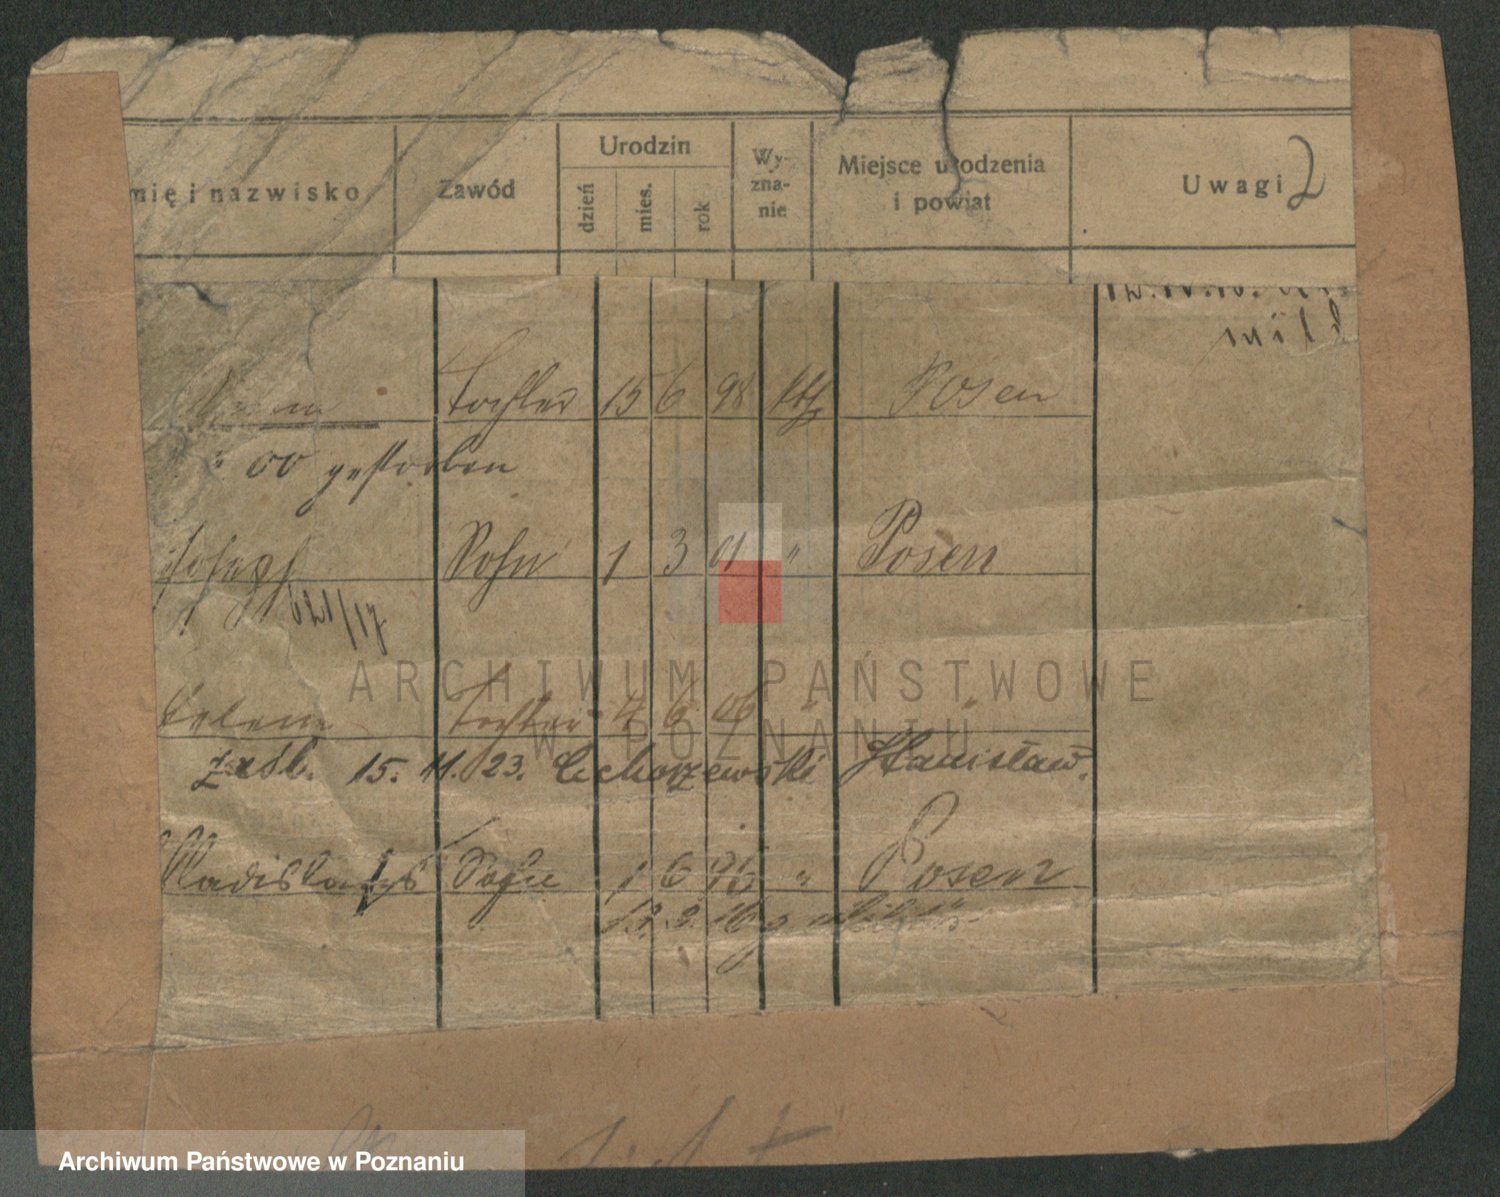 mię i nazwisko Zawód Urodzin dzień mies. rok Wy-zna-nie Miejsce urodzenia i powiat Uwagi 2
Tochter 15 6 98 kth Posen
00 gestorben
Joseph Sohn 1 3 01 " Posen
621/17
Helene Tochter 4 6 "
zaśl. 15. 11. 23. Cichorzewski Stanisław.
Wladislaus Sohn 1 6 96 " Posen
ARCHIWUM PAŃSTWOWE
W POZNANIU
Archiwum Państwowe w Poznaniu